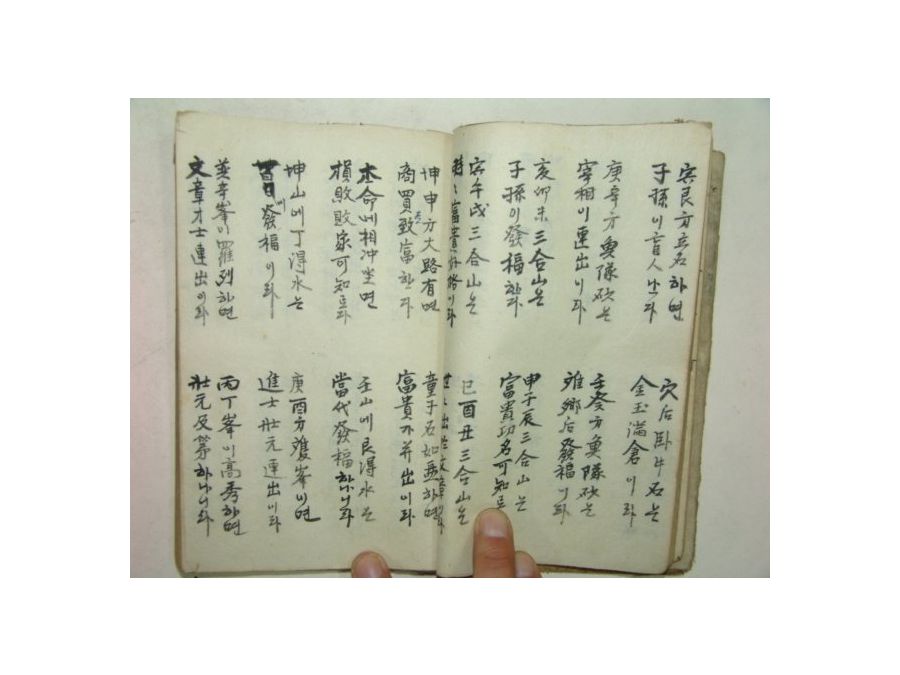 寅艮方立石하면
子孫이盲人난다
庚辛方魚隊砂는
宰相이連出이라
亥卯未三合山은
子孫이發福한다
寅午戌三合山은
富貴好格이라
穴后臥牛石는
金玉滿倉이라
壬癸方魚隊砂는
鄕后發福이라
申子辰三合山은
富貴功名可知로
巳酉丑三合山은
世〃出於文章
坤申方大路有면
商買致富한다
本命에相冲坐면
損敗敗家可知로다
坤山에丁得水는
發福이라
巽辛峯이羅列하면
文章才士連出이라
童子石如無하면
富貴가并出이라
壬山에艮得水는
當代發福하나니라
庚酉方雙峯이면
進士壯元連出이라
丙丁峯이高秀하면
壯元及第하나니라